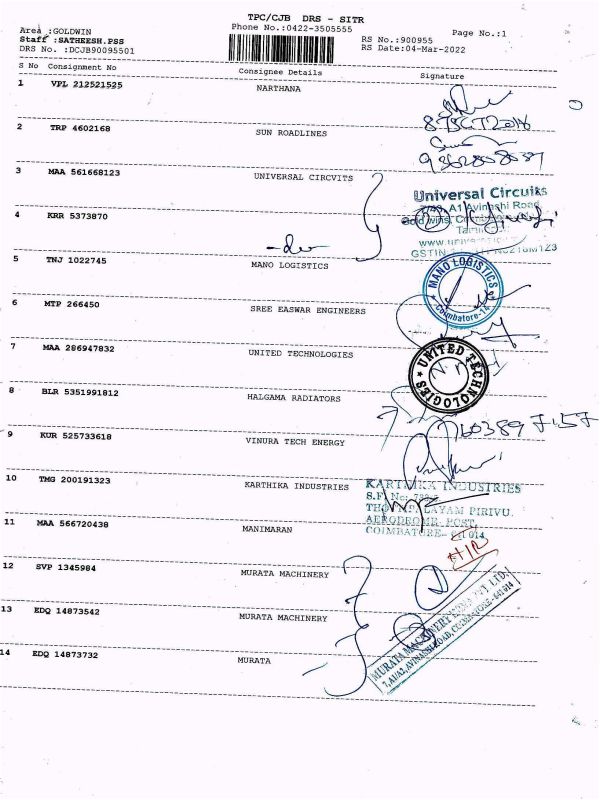 TPC/CJB DRS - SITR
Area :GOLDWIN
Phone No.:0422-3505555
Staff :SATHEESH.PSS
RS No.:900955
Page No.:1
DRS No. :DCJB90095501
RS Date:04-Mar-2022
S No Consignment No Consignee Details Signature
1 VPL 212521525 NARTHANA
2 TRP 4602168 SUN ROADLINES
3 MAA 561668123 UNIVERSAL CIRCVITS
Universal Circuits
A1 Avinashi Road
4 KRR 5373870
5 TNJ 1022745 MANO LOGISTICS
MANO LOGISTICS
Coimbatore-14
6 MTP 266450 SREE EASWAR ENGINEERS
7 MAA 286947832 UNITED TECHNOLOGIES
UNITED TECHNOLOGIES
8 BLR 5351991812 HALGAMA RADIATORS
9 KUR 525733618 VINURA TECH ENERGY
10 TMG 200191323 KARTHIKA INDUSTRIES
KARTHIKA INDUSTRIES
S.F. No:
PIRIVU,
AERODROME POST,
COIMBATORE-
11 MAA 566720438 MANIMARAN
12 SVP 1345984 MURATA MACHINERY
13 EDQ 14873542 MURATA MACHINERY
14 EDQ 14873732 MURATA
MURATA MACHINERY LTD.
AVINASHI ROAD, COIMBATORE - 641 014